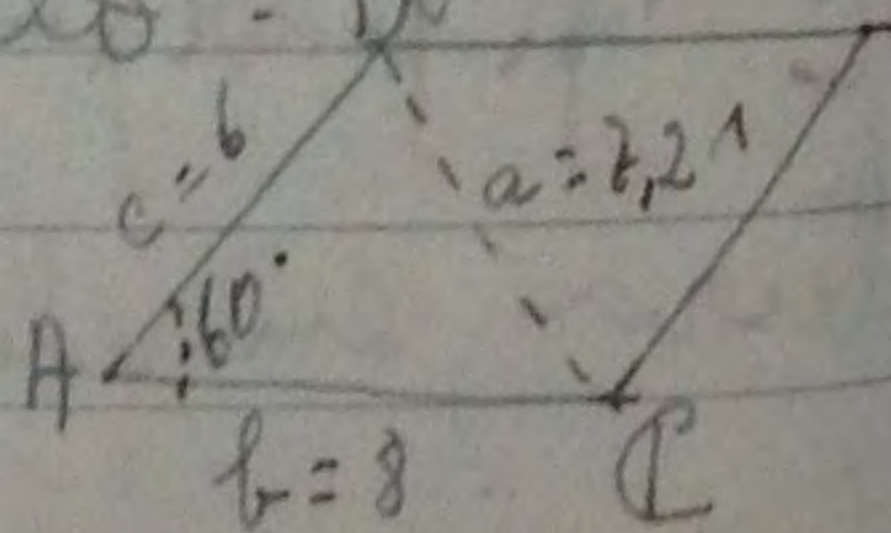 c = 6
a = 7,21
60°
A
b = 8
C